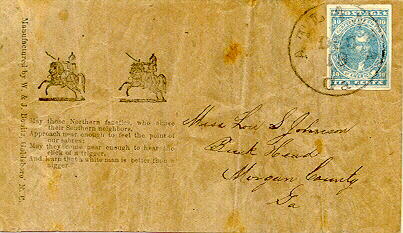 Manufactured by W. & J. Bonitz, Goldsboro N. C.
May those Northern fanatics, who abuse
their Southern neighbors,
Approach near enough to feel the point of
our sabres;
May they come near enough to hear the
click of a trigger,
And learn that a white man is better than a
nigger.
POSTAGE
10 10
TEN CENTS
Miss Lou Johnson
Buck Head
Morgan County
Ga